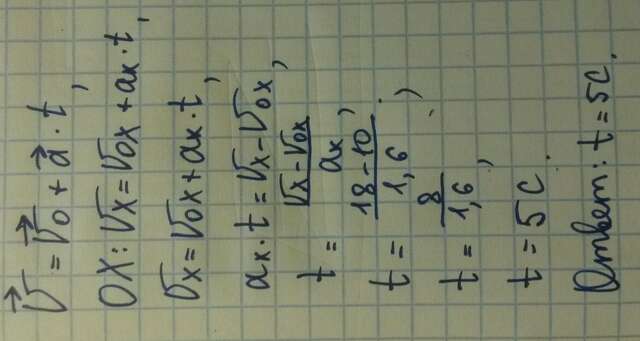 v⃗ = v⃗0 + a⃗ · t,
OX: vx = v0x + ax · t,
vx = v0x + ax · t,
ax · t = vx - v0x,
t = (vx - v0x)/ax,
t = (18 - 10)/1,6;
t = 8/1,6,
t = 5 с.
Ответ: t = 5с.